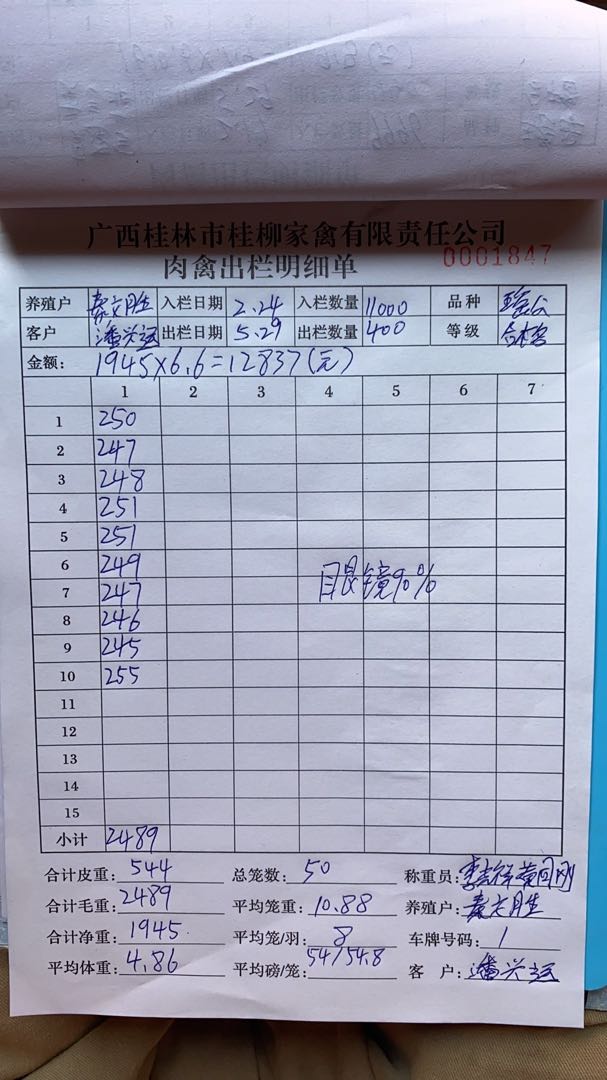 广西桂林市桂柳家禽有限责任公司
肉禽出栏明细单 0001847
养殖户 秦六月生 入栏日期 2.24 入栏数量 11000 品种 瑶公
客户 潘兴运 出栏日期 5.29 出栏数量 400 等级 合格
金额: 1945×6.6=12837(元)
1 2 3 4 5 6 7
1 250
2 247
3 248
4 251
5 251
6 249
目艮镜90%
7 247
8 246
9 245
10 255
11
12
13
14
15
小计 2489
合计皮重: 544 总笼数: 50 称重员:
合计毛重: 2489 平均笼重: 10.88 养殖户: 秦六月生
合计净重: 1945 平均笼/羽: 8 车牌号码: 1
平均体重: 4.86 平均磅/笼: 54/54.8 客户: 潘兴运